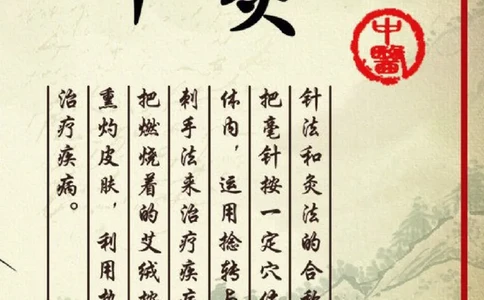 灸
中醫
针法和灸法的合称
把毫针按一定穴位
体内，运用捻转与
刺手法来治疗疾病
把燃烧着的艾绒按
熏灼皮肤，利用热
治疗疾病。